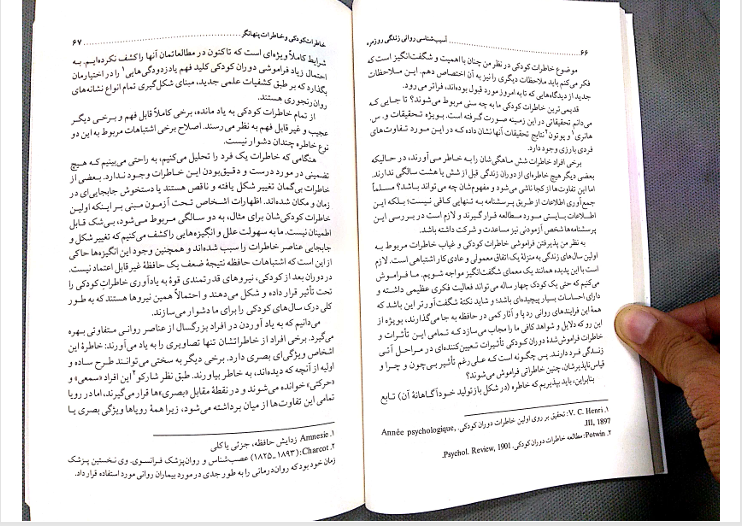 ۶۶ آسیب‌شناسی روانی زندگی روزمره
موضوع خاطرات کودکی در نظر من چنان با اهمیت و شگفت‌انگیز است که
فکر می‌کنم باید ملاحظات دیگری را نیز به آن اختصاص دهم. این ملاحظات
جدید از دیدگاه‌هایی که تا به امروز مورد قبول بوده‌اند، فراتر می‌رود.
قدیمی‌ترین خاطرات کودکی ما به چه سنی مربوط می‌شوند؟ تا جایی که
می‌دانم تحقیقاتی در این زمینه صورت گرفته است. بویژه تحقیقات و. س.
هانری۱ و پوتون۲ نتایج تحقیقات آنها نشان داده که در این مورد تفاوت‌های
فردی بارزی وجود دارد.
برخی افراد خاطرات شش ماهگی‌شان را به خاطر می‌آورند، در حالیکه
بعضی دیگر هیچ خاطره‌ای از دوران زندگی قبل از شش یا هشت سالگی ندارند.
اما این تفاوت‌ها از کجا ناشی می‌شود و مفهوم‌شان چه می‌تواند باشد؟ مسلماً
جمع‌آوری اطلاعات از طریق پرسشنامه به تنهایی کافی نیست؛ بلکه این
اطلاعات بایستی مورد مطالعه قرار گیرند و لازم است در بررسی این
پرسشنامه‌ها شخص آزمودنی نیز مساعدت و شرکت داشته باشد.
به نظر من پذیرفتن فراموشی خاطرات کودکی و غیاب خاطرات مربوط به
اولین سال‌های زندگی به منزلهٔ یک اتفاق معمولی و عادی کار اشتباهی است، لازم
است با این پدیده همانند یک معمای شگفت‌انگیز مواجه شویم. ما فراموش
می‌کنیم که حتی یک کودک چهار ساله می‌تواند فعالیت فکری عظیمی داشته و
دارای احساسات بسیار پیچیده‌ای باشد؛ و شاید نکتهٔ شگفت‌آورتر این باشد که
همهٔ این فرایندهای روانی رد پا و آثار کمی در حافظه به جا می‌گذارند، بویژه از
این رو که دلایل و شواهد کافی ما را مجاب می‌سازد که تمامی این تأثیرات و
خاطرات فراموش‌شدهٔ دوران کودکی تأثیرات تعیین‌کننده‌ای در مراحل آتی
زندگی فرد دارند. پس چگونه است که علی‌رغم تأثیر بی‌چون و چرا و
قیاس‌ناپذیرشان، چنین خاطراتی فراموش می‌شوند؟
بنابراین، باید بپذیریم که خاطره (در شکل بازتولید خودآگاهانهٔ آن) تابع
۱. V. C. Henri: تحقیق بر روی اولین خاطرات دوران کودکی. Année psychologique,
III, 1897.
۲. Potwin: مطالعه خاطرات دوران کودکی. Psychol. Review, 1901.
خاطرات کودکی و خاطرات پنهانگر ۶۷
شرایط کاملاً ویژه‌ای است که تاکنون در مطالعاتمان آنها را کشف نکرده‌ایم. به
احتمال زیاد فراموشی دوران کودکی کلید فهم یادزدودگی‌هایی۱ را در اختیارمان
بگذارد که بر طبق کشفیات علمی جدید، مبنای شکل‌گیری تمام انواع نشانه‌های
روان‌رنجوری هستند.
از تمام خاطرات کودکی به یاد مانده، برخی کاملاً قابل فهم و برخی دیگر
عجیب و غیرقابل فهم به نظر می‌رسند. اصلاح برخی اشتباهات مربوط به این دو
نوع خاطره چندان دشوار نیست.
هنگامی که خاطرات یک فرد را تحلیل می‌کنیم، به راحتی می‌بینیم که هیچ
تضمینی در مورد درست و دقیق‌بودن این خاطرات وجود ندارد. بعضی از
خاطرات بی‌گمان تغییر شکل یافته و ناقص هستند یا دستخوش جابجایی‌ای در
زمان و مکان شده‌اند. اظهارات اشخاص تحت آزمون مبنی بر اینکه اولین
خاطرات کودکی‌شان برای مثال، به دو سالگی مربوط می‌شود، بی‌شک قابل
اطمینان نیست. ما به سهولت علل و انگیزه‌هایی را کشف می‌کنیم که تغییر شکل و
جابجایی عناصر خاطرات را سبب شده‌اند و همچنین وجود این انگیزه‌ها حاکی
از این است که اشتباهات حافظه نتیجهٔ ضعف یک حافظهٔ غیرقابل اعتماد نیست.
در دوران بعد از کودکی، نیروهای قدرتمندی قوهٔ به یادآوری خاطرات کودکی را
تحت تأثیر قرار داده و شکل می‌دهند و احتمالاً همین نیروها هستند که به طور
کلی درک سال‌های کودکی را برای ما دشوار می‌سازند.
می‌دانیم که به یاد آوردن در افراد بزرگسال از عناصر روانی متفاوتی بهره
می‌گیرد. برخی افراد از خاطراتشان تنها تصاویری را به یاد می‌آورند: خاطرهٔ این
اشخاص ویژگی‌ای بصری دارد. برخی دیگر به سختی می‌توانند طرح ساده و
اولیه از آنچه که دیده‌اند، به خاطر بیاورند. طبق نظر شارکو۲ این افراد «سمعی» و
«حرکتی» خوانده می‌شوند و در نقطهٔ مقابل «بصری»‌ها قرار می‌گیرند، اما در رویا
تمامی این تفاوت‌ها از میان برداشته می‌شود، زیرا همهٔ رویاها ویژگی بصری با
۱. Amnesie زدایش حافظه، جزئی یا کلی
۲. Charcot: (۱۸۹۳-۱۸۲۵) عصب‌شناس و روان‌پزشک فرانسوی. وی نخستین پزشک
زمان خود بود که روان‌درمانی را به طور جدی در مورد بیماران روانی مورد استفاده قرار داد.